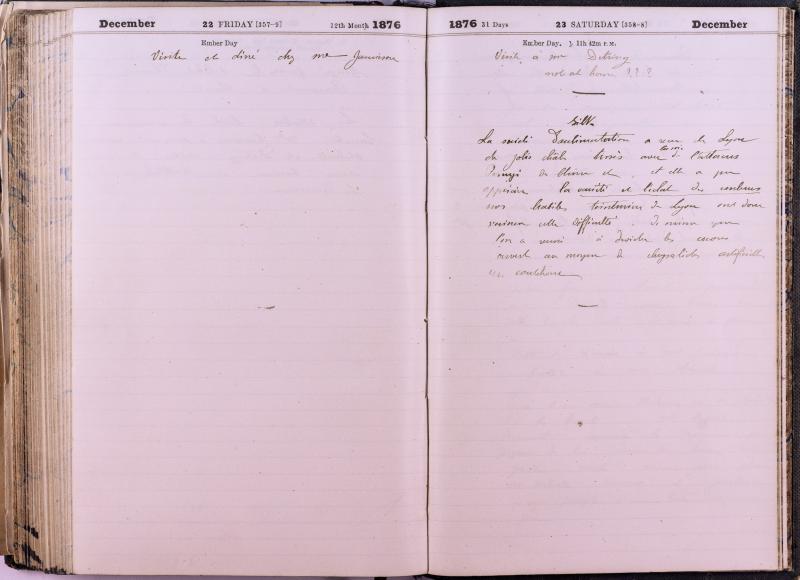 December 22 FRIDAY [357-9] 12th Month 1876
Ember Day
Visite et diné chez mr Jamieson
1876 31 Days 23 SATURDAY [358-8] December
Ember Day. ☽ 11h 42m P.M.
Visite à mr Detring
not at home ? ? ?
Silk
La société d'acclimatation a reçu de Lyon
de jolis tissés avec de l'attacus
de Chine et et elle a pu
apprécier la variété et l'éclat des couleurs
nos habiles teinturiers de Lyon ont donc
vaincu cette difficulté. De même que
l'on a réussi à dévider les cocons
ouverts au moyen de chrysalides artificielles
en caoutchouc